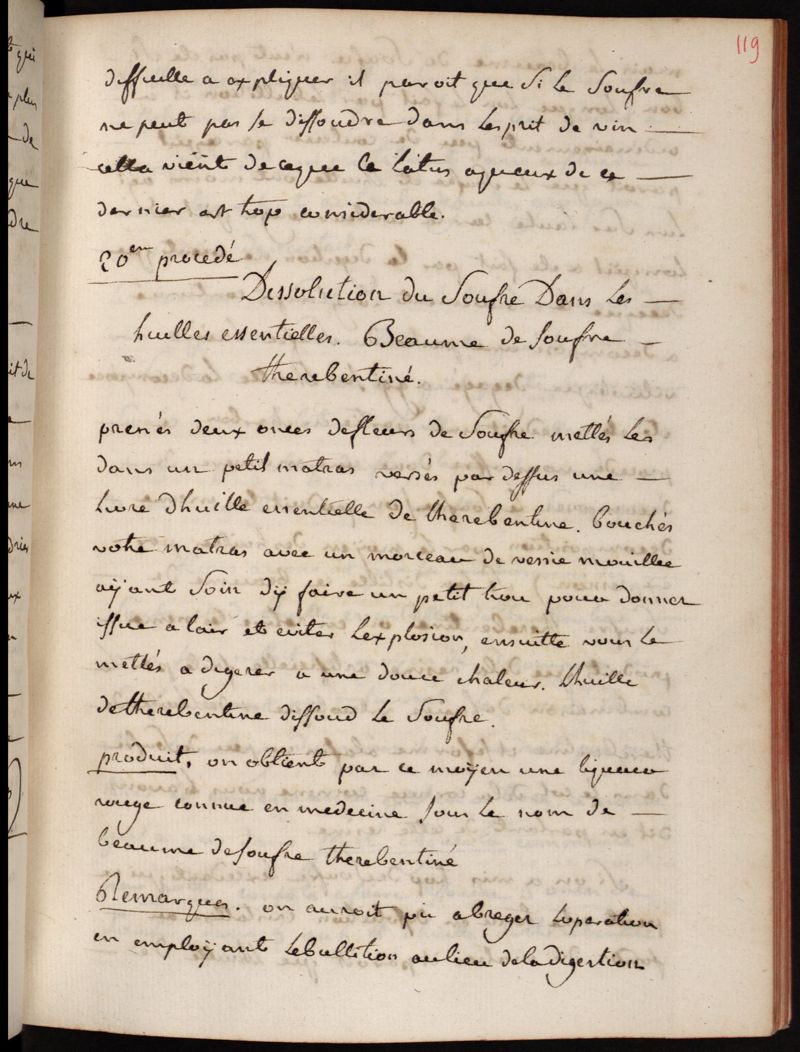 119
difficille a expliquer il paroit que Si le Soufre
ne peut pas se dissoudre dans lesprit de vin —
cella vient de ceque le latus aqueux de ce —
dernier est trop considerable.
20em procedé
Dissolution du Soufre Dans Les —
huilles essentielles. Beaume de soufre —
therebentiné.
prenés deux onces defleurs de Soufre mettés Les
dans un petit matras versés par dessus une —
livre dhuille essentielle de therebentine. bouchés
votre matras avec un morceau de vessie mouillee
aÿant Soin dÿ faire un petit trou pour donner
issue a lair et eviter Lexplosion, ensuitte vous le
mettés a digerer a une douce chaleur. Lhuille
detherebentine dissoud le Soufre.
produit. on obtient par ce moÿen une liqueur
rouge connue en medecine sous le nom de —
beaume desoufre therebentiné
Remarques. on auroit pu abreger loperation
en emploÿant Lebullition aulieu deladigestion